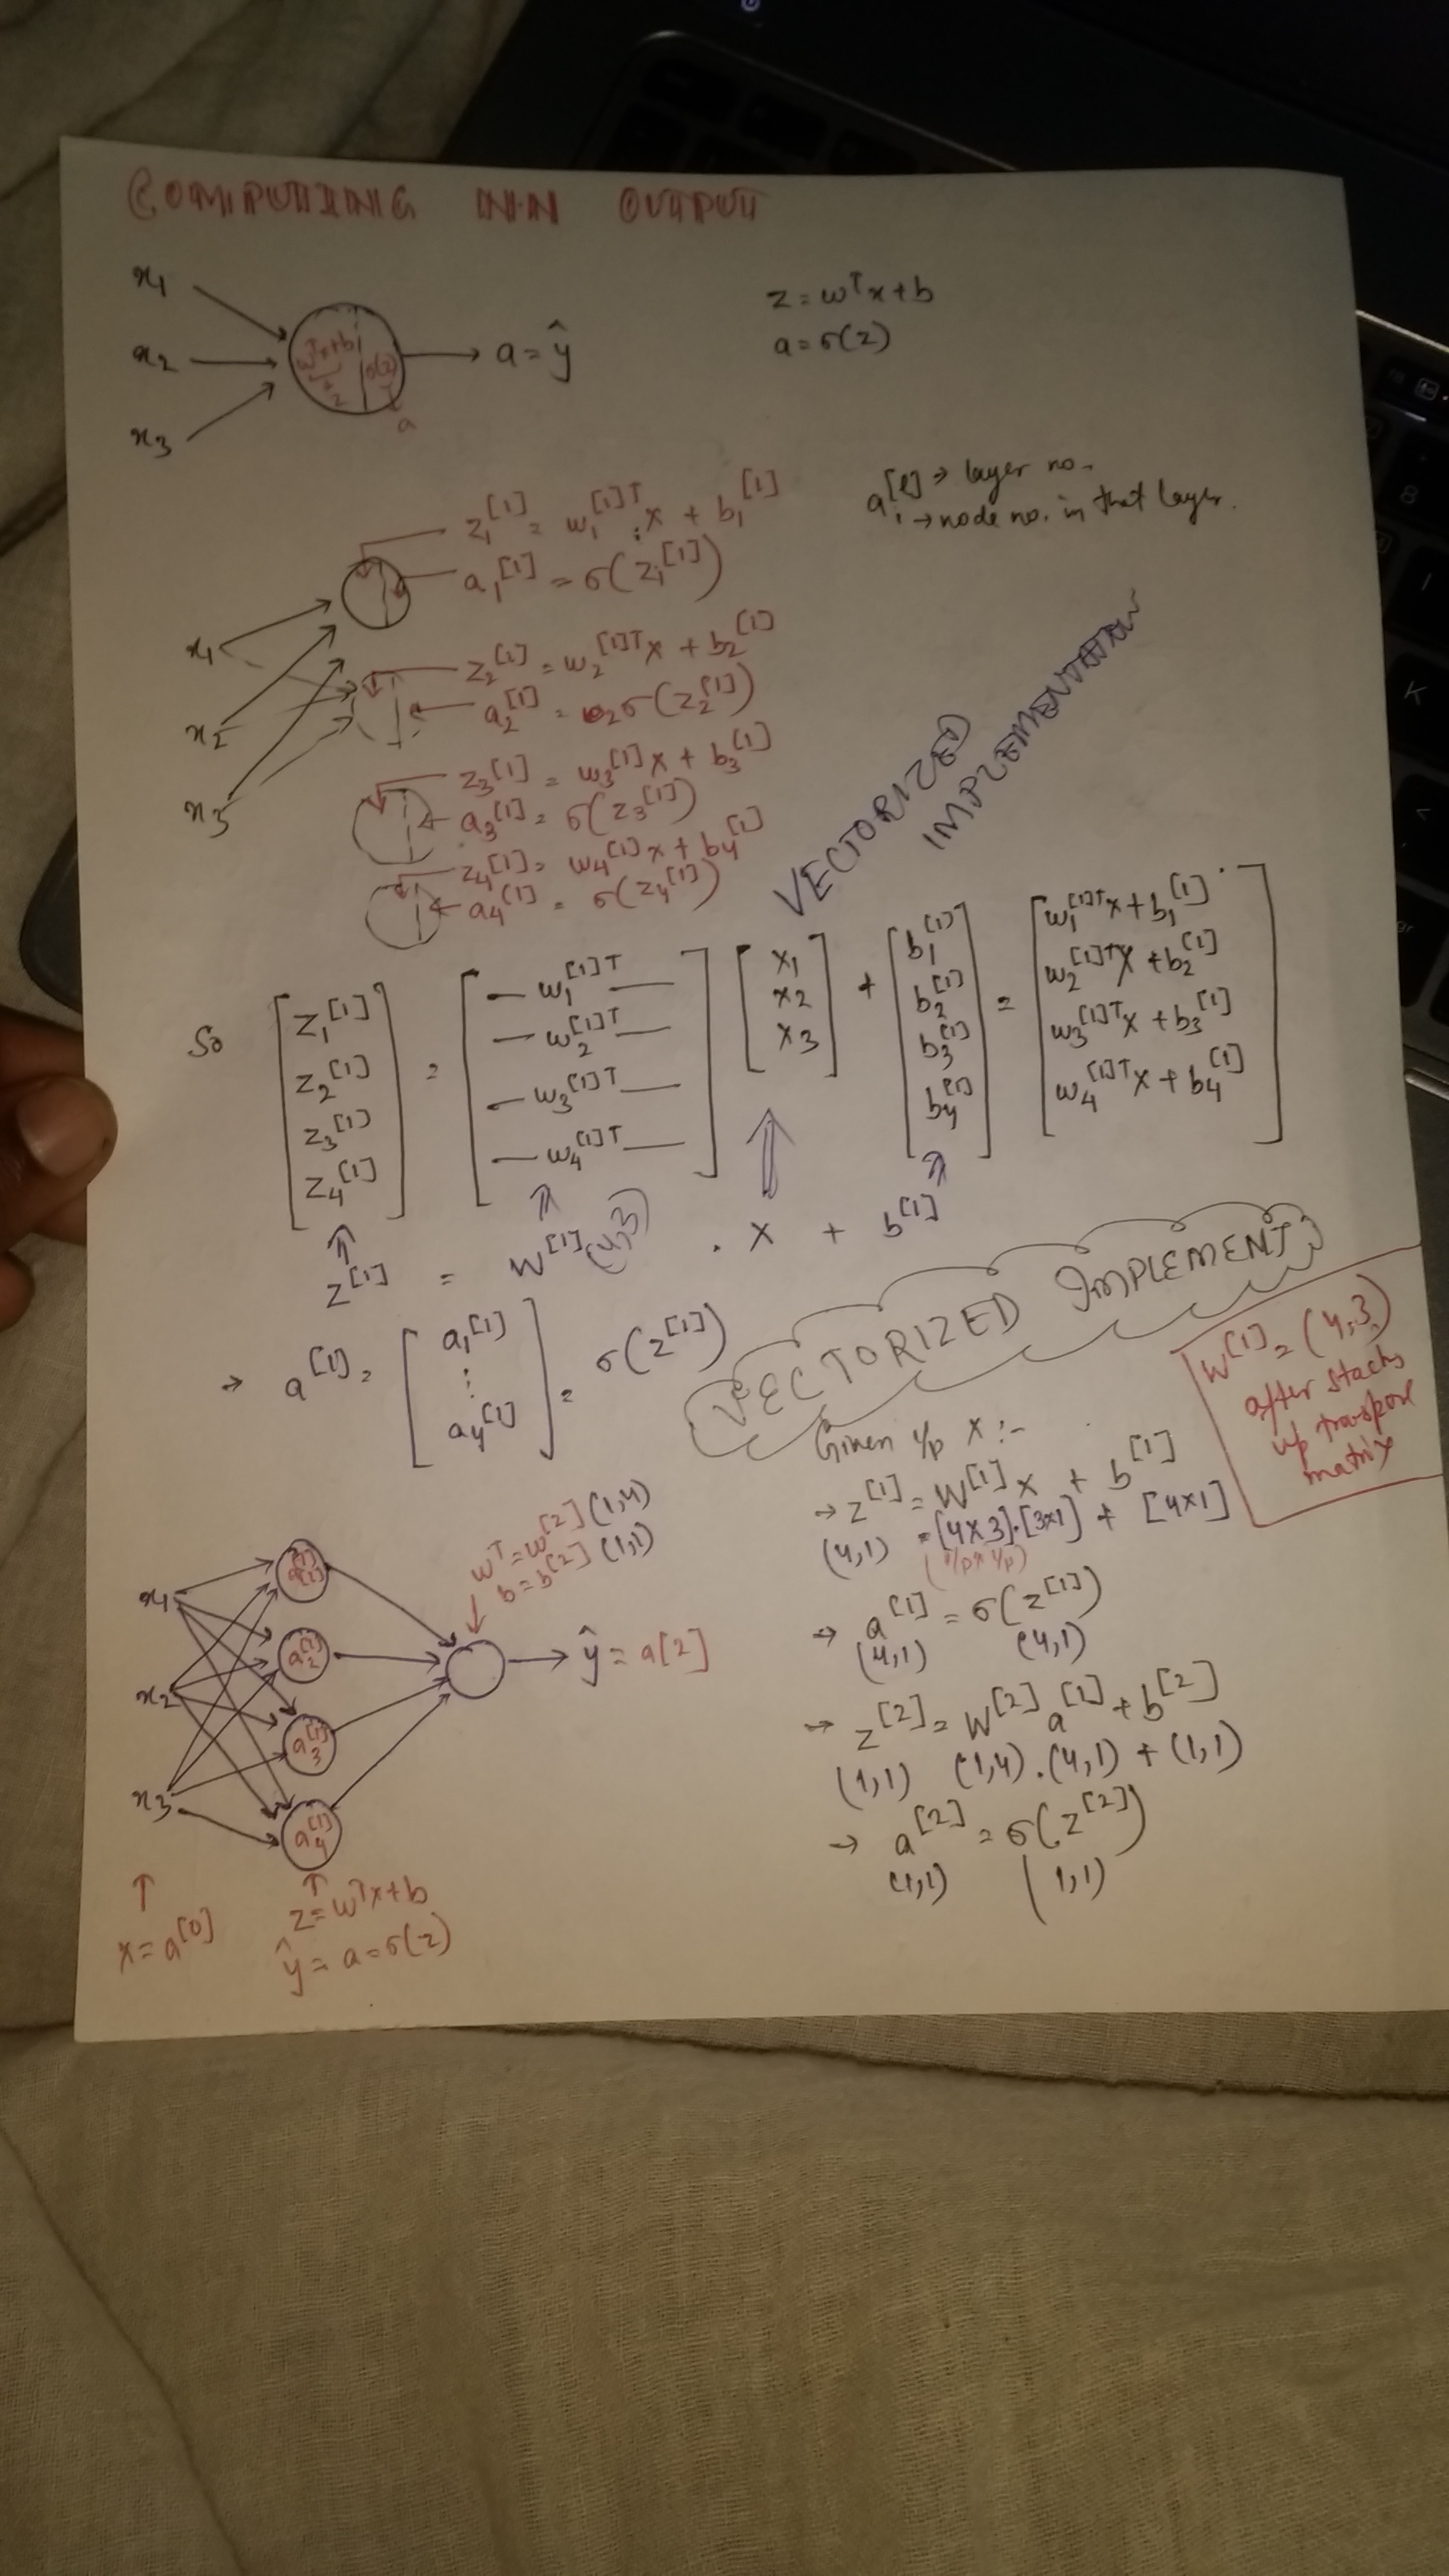 COMPUTING N.N OUTPUT
x1
x2
x3
wᵀx+b
z
σ(z)
a
a = ŷ
z = wᵀx + b
a = σ(z)
aᵢ[l] → layer no.
→ node no. in that layer.
z1[1] = w1[1]ᵀ x + b1[1]
a1[1] = σ(z1[1])
x1
x2
x3
z2[1] = w2[1]ᵀx + b2[1]
a2[1] = σ(z2[1])
z3[1] = w3[1]x + b3[1]
a3[1] = σ(z3[1])
z4[1] = w4[1]x + b4[1]
a4[1] = σ(z4[1])
VECTORIZED
IMPLEMENTATION
So [z1[1] z2[1] z3[1] z4[1]] = [— w1[1]ᵀ — — w2[1]ᵀ — — w3[1]ᵀ — — w4[1]ᵀ —] [x1 x2 x3] + [b1[1] b2[1] b3[1] b4[1]] = [w1[1]ᵀx + b1[1] w2[1]ᵀx + b2[1] w3[1]ᵀx + b3[1] w4[1]ᵀx + b4[1]]
z[1] = W[1](4,3) . x + b[1]
→ a[1] = [a1[1] ⋮ a4[1]] = σ(z[1])
VECTORIZED IMPLEMENT
W[1] = (4,3)
after stacks
up transpose
matrix
Given i/p x :-
→ z[1] = W[1] x + b[1]
(4,1) = [4x3].[3x1] + [4x1]
→ a[1] = σ(z[1])
(4,1) (4,1)
→ z[2] = W[2] a[1] + b[2]
(1,1) (1,4) . (4,1) + (1,1)
→ a[2] = σ(z[2])
(1,1) (1,1)
wᵀ = w[2] (1,4)
b = b[2] (1,1)
x1
x2
x3
a2[1]
a3[1]
a4[1]
ŷ = a[2]
x = a[0]
z = wᵀx + b
ŷ = a = σ(z)